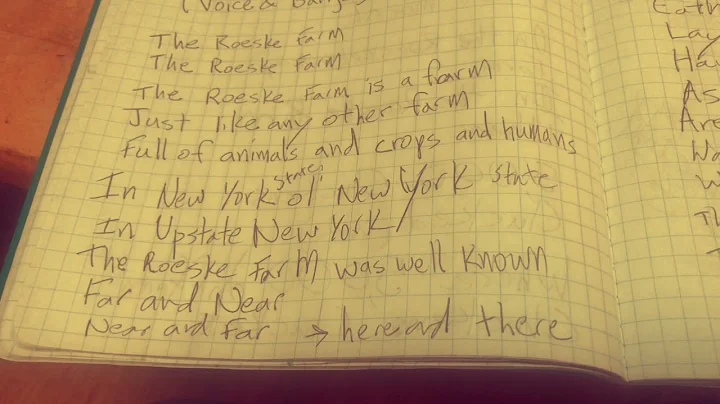 (Voice & Banjo)
The Roeske Farm
The Roeske Farm
The Roeske Farm is a farm
Just like any other farm
Full of animals and crops and humans
In New York State, ol' New York State
In Upstate New York
The Roeske Farm was well known
Far and Near
Near and Far → here and there
Lay
As
Are